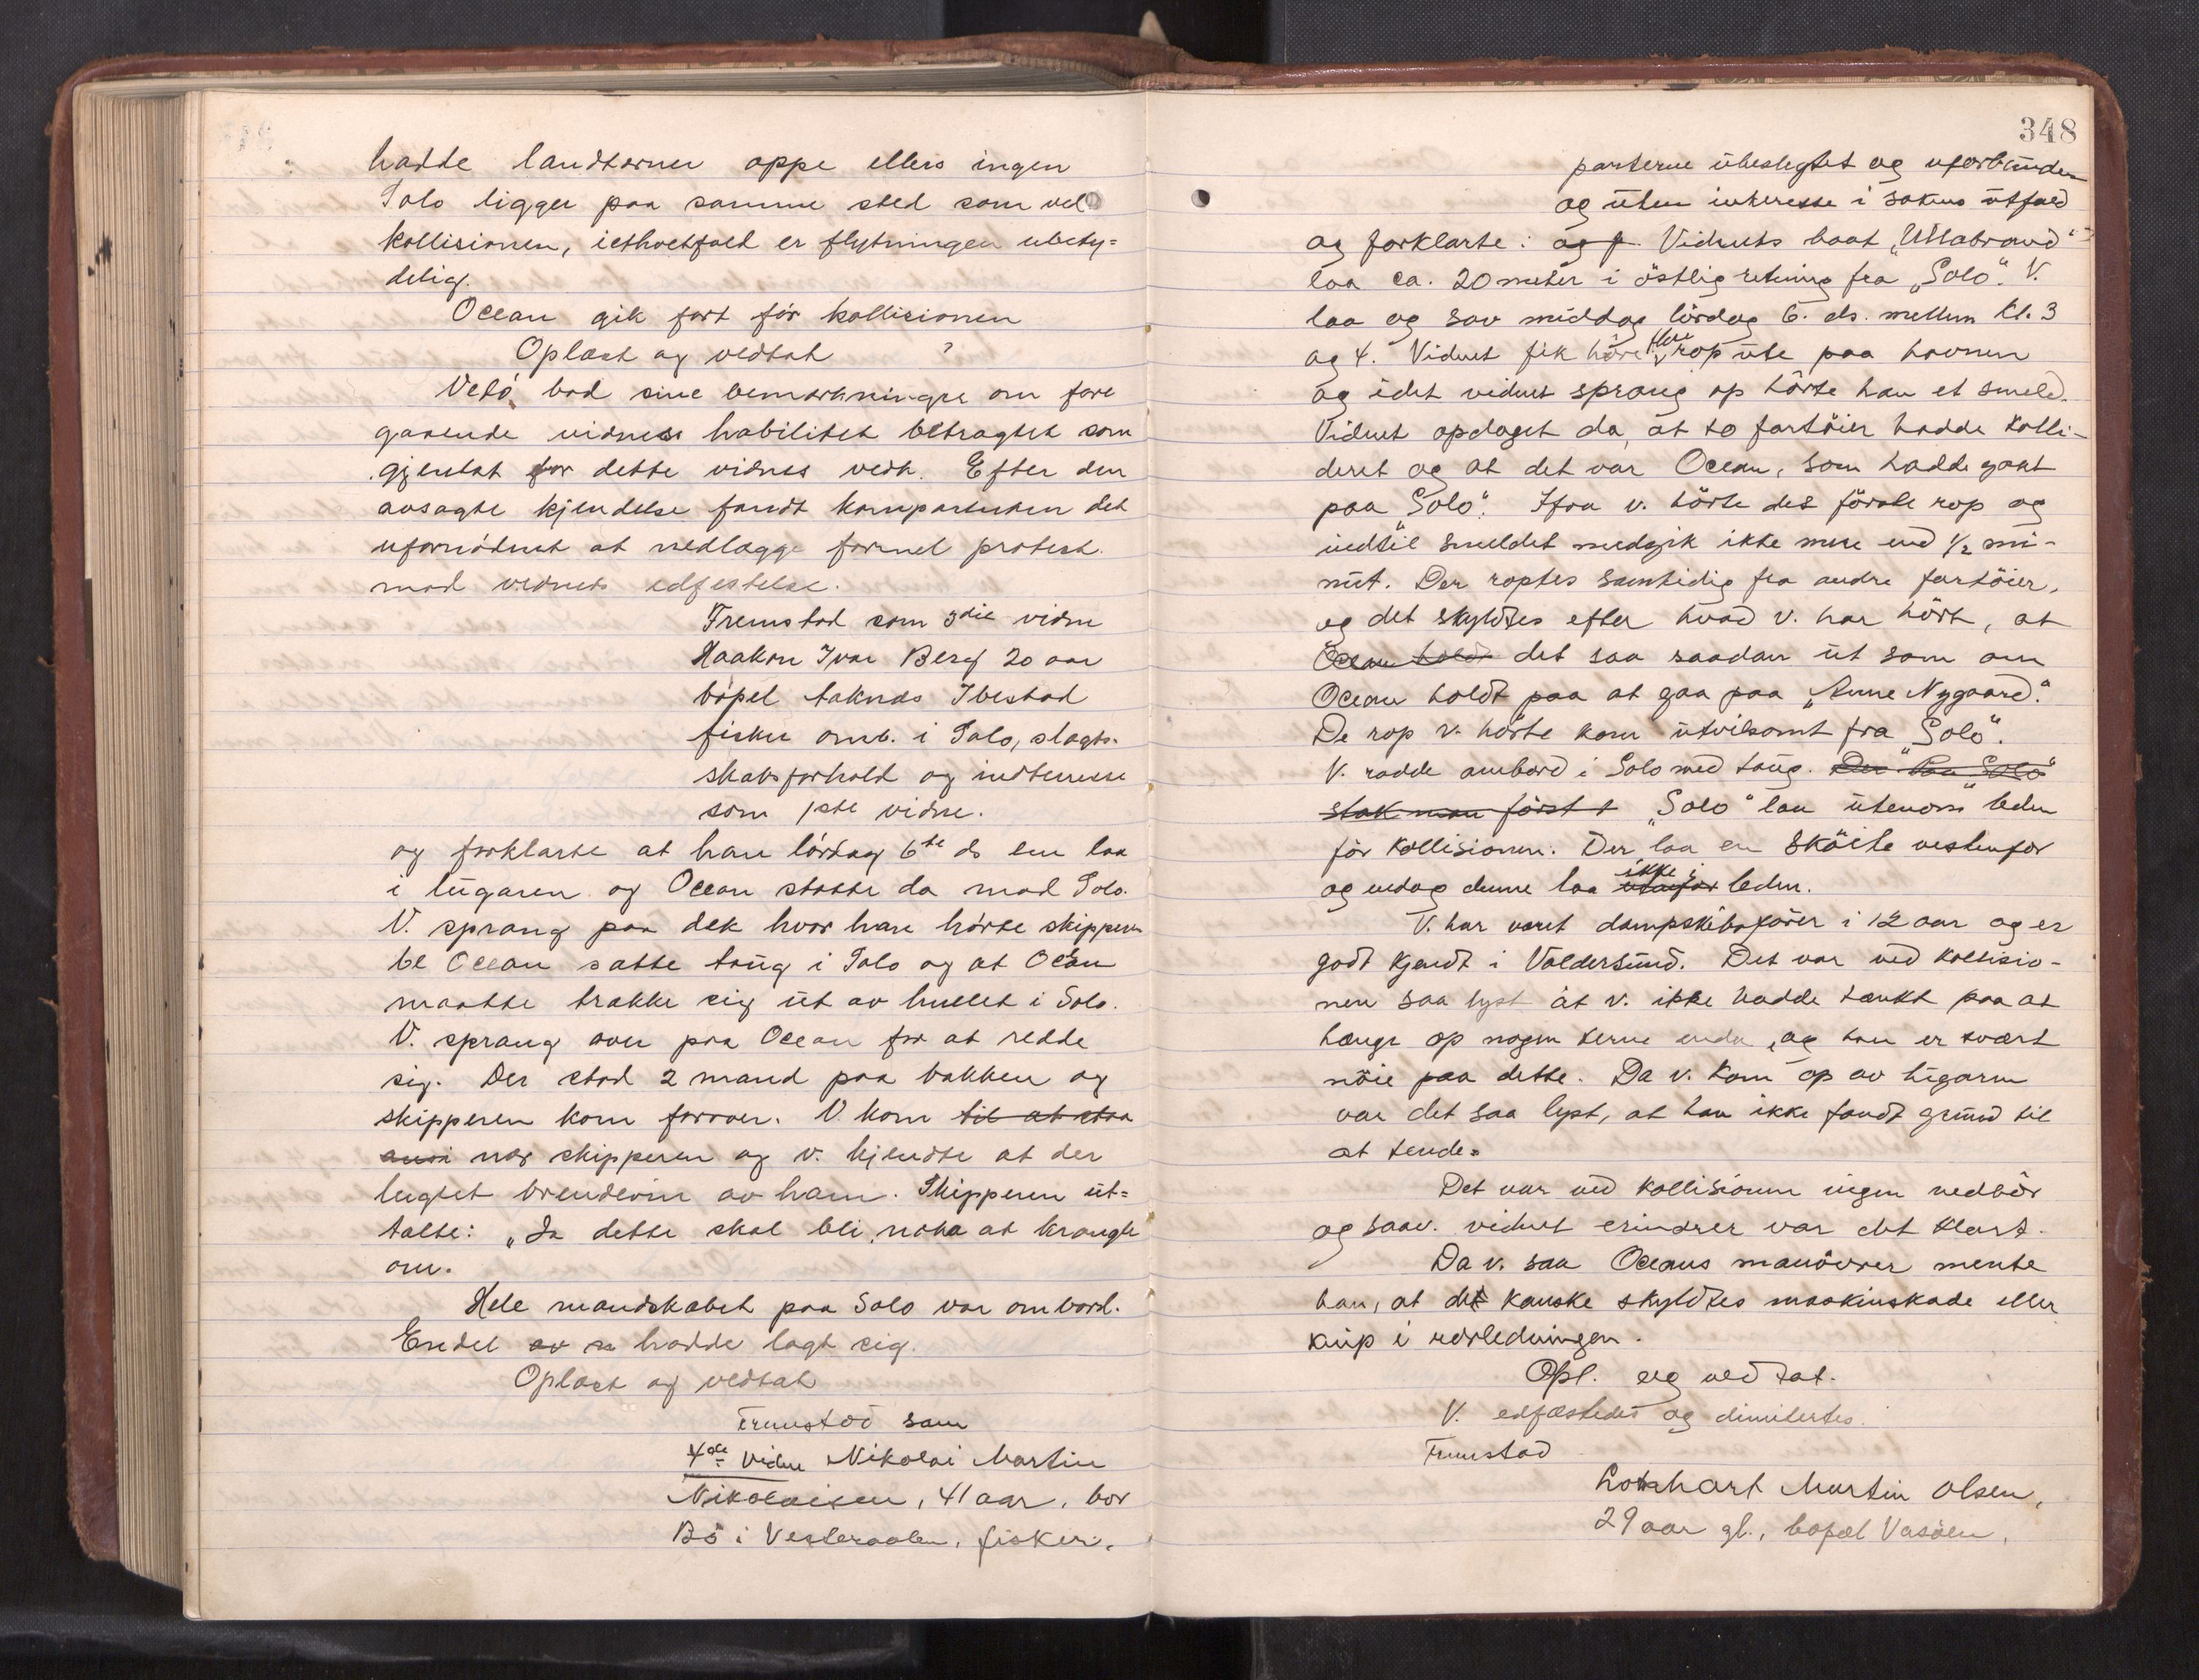 hadde landterner oppe ellers ingen
Solo ligger paa samme sted som ved
kollisionen, iethvetfald er flytningen ubety=
delig.
Ocean gik fort før kollisionen
Oplæst og vedtat ?
Vetó bad sine bemærkninger om fore
gaaende vidness habilitet betragtet som
gjentat for dette vidnes vedk. Efter den
avsagte kjendelse fandt komparenten det
ufornødent at nedlægge formel protest
mod vidnets edfestelse.
Fremstod som 3die vidne
Haakon Ivar Berg 20 aar
bopel Laknæs Ibestad
fisker omb. i Solo, slægts-
skabsforhold og indteresse
som 1ste vidne.
og forklarte at han lørdag 6te ds em laa
i lugaren og Ocean støtte da mod Solo.
V. sprang paa dek hvor han hørte skipperen
be Ocean sætte taug i Solo og at Ocean
maatte trække sig ut av hullet i Solo.
V. sprang over paa Ocean for at redde
sig. Der stod 2 mand paa bakken og
skipperen kom forover. V. kom til at staa
nær skipperen og v. kjendte at der
lugtet brendevin av ham. Skipperen ut=
talte: „Ja dette skal bli noka at krangle
om.
Hele mandskabet paa Solo var ombord.
Endel av hadde lagt sig.
Oplæst og vedtat
Fremstod som
4de vidne Nikolai Martin
Nikolaisen, 41 aar, bor
Bö i Vesteraalen, fisker,
348
parterne ubeslegtet og uforbunden
og uten interesse i sakens utfald
og forklarte: og f. Vidnets baat „Ullabrand"
laa ca. 20 meter i östlig retning fra „Solo". V.
laa og sov middag lördag 6. ds. mellem kl. 3
og 4. Vidnet fik höre flere rop ute paa havnen
og idet vidnet sprang op hörte han et smeld.
Vidnet opdaget da, at to fartöier hadde kolli-
deret og at det var Ocean, som hadde gaat
paa „Solo". Ifra v. hörte det förste rop og
indtil smeldet medgik ikke mere end 1/2 mi-
nut. Der roptes samtidig fra andre fartöier,
og det skyldtes efter hvad v. har hört, at
Ocean holdt det saa saadan ut som om
Ocean holdt paa at gaa paa „Anne Nygaard".
De rop v. hörte kom utvilsomt fra „Solo".
V. rodde ombord i Solo med taug. Der Paa „Solo"
stak man först t „Solo" laa utenom leden
för kollisionen. Der laa en sköite vestenfor
og endog denne laa utenfor ikke i leden.
V. har været dampskibsförer i 12 aar og er
godt kjendt i Valdersund. Det var ved kollisio-
nen saa lyst at v. ikke hadde tænkt paa at
hænge op nogen terne enda, og han er svært
nöie paa dette. Da v. kom op av lugaren
var det saa lyst, at han ikke fandt grund til
at tende.
Det var ved kollisionen ingen nedbör
og saav. vidnet erindrer var det klart.
Da v. saa Oceans manövrer mente
han, at det kanske skyldtes maskinskade eller
knip i rorledningen.
Opl. og vedtat.
V. edfæstedes og dimitertes.
Fremstod
Lothart Martin Olsen,
29 aar gl., bopæl Vasöen,